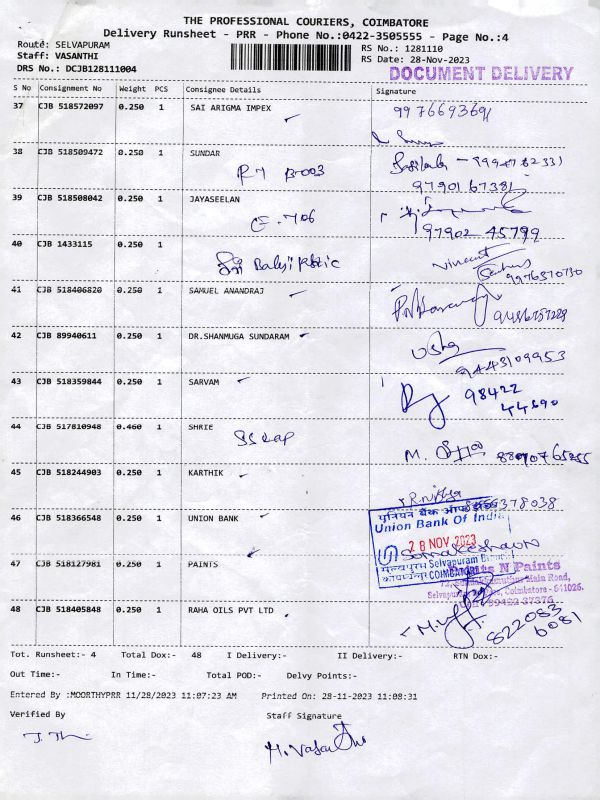 THE PROFESSIONAL COURIERS, COIMBATORE
Delivery Runsheet - PRR - Phone No.:0422-3505555 - Page No.:4
Route: SELVAPURAM
RS No.: 1281110
Staff: VASANTHI
RS Date: 28-Nov-2023
DRS No.: DCJB128111004
DOCUMENT DELIVERY
S No Consignment No Weight PCS Consignee Details Signature
37 CJB 518572097 0.250 1 SAI ARIGMA IMPEX
9976693691
38 CJB 518509472 0.250 1 SUNDAR
B003
9790167381
39 CJB 518508042 0.250 1 JAYASEELAN
E. 706
97902 45799
40 CJB 1433115 0.250 1
Sri Balaji
Vincent
9976570730
41 CJB 518406820 0.250 1 SAMUEL ANANDRAJ
42 CJB 89940611 0.250 1 DR.SHANMUGA SUNDARAM
Usha
9443109953
43 CJB 518359844 0.250 1 SARVAM
98422
44690
44 CJB 517810948 0.460 1 SHRIE
M.
45 CJB 518244903 0.250 1 KARTHIK
46 CJB 518366548 0.250 1 UNION BANK
Union Bank Of India
28 NOV 2023
Selvapuram Branch
COIMBATORE
47 CJB 518127981 0.250 1 PAINTS
N Paints
Main Road,
Coimbatore - 641026.
48 CJB 518405848 0.250 1 RAHA OILS PVT LTD
822083
6081
Tot. Runsheet:- 4 Total Dox:- 48 I Delivery:- II Delivery:- RTN Dox:-
Out Time:- In Time:- Total POD:- Delvy Points:-
Entered By :MOORTHYPRR 11/28/2023 11:07:23 AM Printed On: 28-11-2023 11:08:31
Verified By Staff Signature
M. Vasanthi